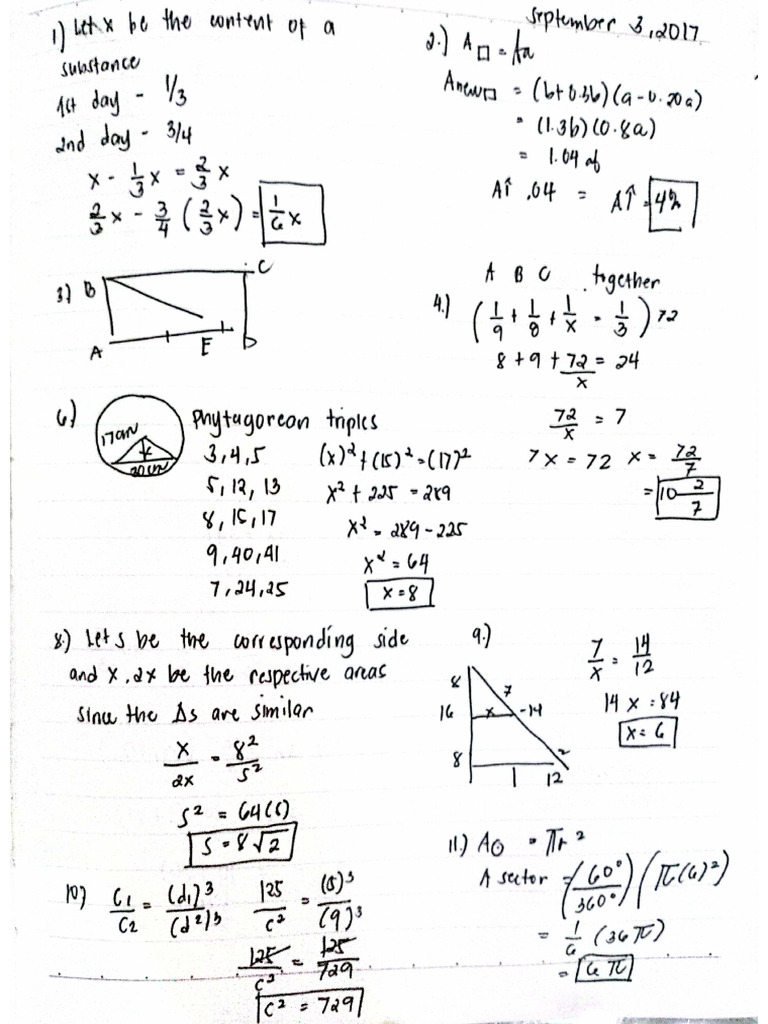 September 3, 2017
1) Let x be the content of a
substance
1st day - 1/3
2nd day - 3/4
x - 1/3 x = 2/3 x
2/3 x - 3/4 (2/3 x) = 1/6 x
2.) A□ =
A new □ = (b+0.3b)(a-0.20a)
= (1.3b)(0.8a)
= 1.04 ab
A↑ .04 = A↑ = 4%
3) B C
A E D
4.) A B C together
(1/9 + 1/8 + 1/x = 1/3) 72
8 + 9 + 72/x = 24
72/x = 7
7x = 72 x = 72/7
= 10 2/7
6) 17cm x 30cm
Phytagorean triples
3,4,5
5, 12, 13
8, 15, 17
9, 40, 41
7, 24, 25
(x)² + (15)² = (17)²
x² + 225 = 289
x² = 289 - 225
x² = 64
x = 8
8.) Let s be the corresponding side
and x, 2x be the respective areas
since the Δs are similar
x/2x = 8²/s²
s² = 64(s)
s = 8√2
9.)
8 7
16 x -14
8 2
1 12
7/x = 14/12
14x = 84
x = 6
10) C1/C2 = (d1)³/(d2)³ 125/c² = (5)³/(9)³
125/c² = 125/729
c² = 729
11.) A⊙ = πr²
A sector = (60°/360°)(π(6)²)
= 1/6 (36π)
= 6π